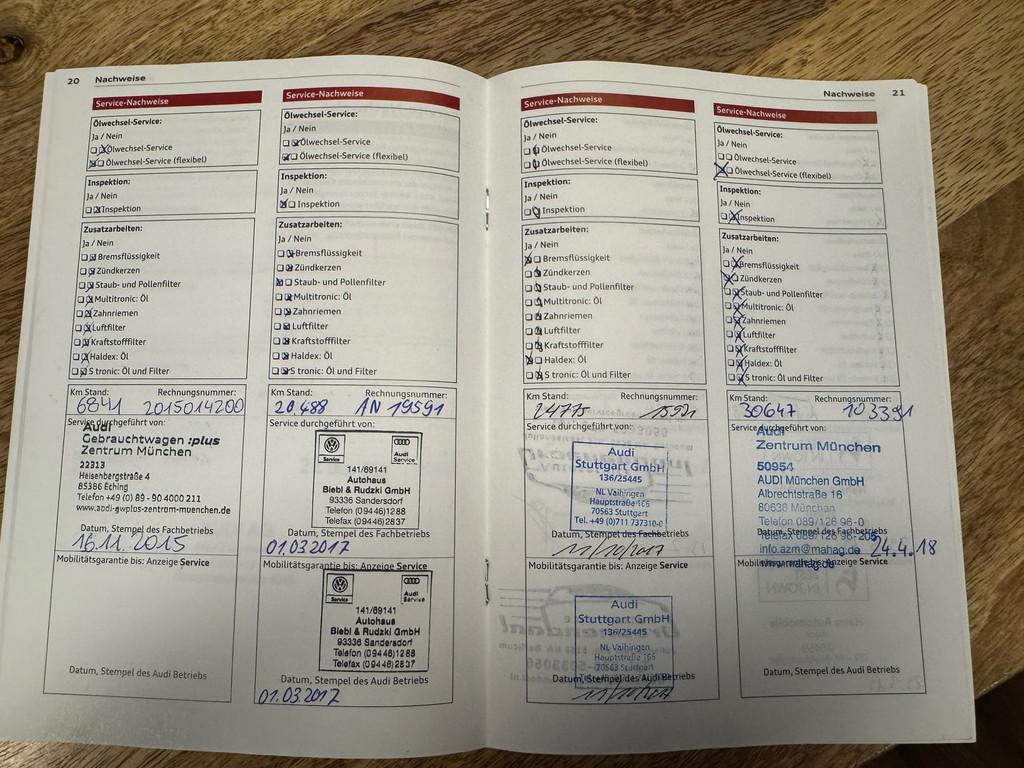 20 Nachweise
Service-Nachweise
Ölwechsel-Service:
Ja / Nein
Ölwechsel-Service
Ölwechsel-Service (flexibel)
Inspektion:
Ja / Nein
Inspektion
Zusatzarbeiten:
Ja / Nein
Bremsflüssigkeit
Zündkerzen
Staub- und Pollenfilter
Multitronic: Öl
Zahnriemen
Luftfilter
Kraftstofffilter
Haldex: Öl
S tronic: Öl und Filter
Km Stand: Rechnungsnummer:
6841 2015014200
Service durchgeführt von:
Audi
Gebrauchtwagen :plus
Zentrum München
22313
Heisenbergstraße 4
85386 Eching
Telefon +49 (0) 89 - 90 4000 211
www.audi-gwplus-zentrum-muenchen.de
Datum, Stempel des Fachbetriebs
16.11.2015
Mobilitätsgarantie bis: Anzeige Service
Datum, Stempel des Audi Betriebs
Service-Nachweise
Ölwechsel-Service:
Ja / Nein
Ölwechsel-Service
Ölwechsel-Service (flexibel)
Inspektion:
Ja / Nein
Inspektion
Zusatzarbeiten:
Ja / Nein
Bremsflüssigkeit
Zündkerzen
Staub- und Pollenfilter
Multitronic: Öl
Zahnriemen
Luftfilter
Kraftstofffilter
Haldex: Öl
S tronic: Öl und Filter
Km Stand: Rechnungsnummer:
20.488 AN 19591
Service durchgeführt von:
Service Audi Service
141/69141
Autohaus
Biebl & Rudzki GmbH
93336 Sandersdorf
Telefon (09446)1288
Telefax (09446)2837
Datum, Stempel des Fachbetriebs
01.03.2017
Mobilitätsgarantie bis: Anzeige Service
Service Audi Service
141/69141
Autohaus
Biebl & Rudzki GmbH
93336 Sandersdorf
Telefon (09446)1288
Telefax (09446)2837
Datum, Stempel des Audi Betriebs
01.03.2017
Nachweise 21
Service-Nachweise
Ölwechsel-Service:
Ja / Nein
Ölwechsel-Service
Ölwechsel-Service (flexibel)
Inspektion:
Ja / Nein
Inspektion
Zusatzarbeiten:
Ja / Nein
Bremsflüssigkeit
Zündkerzen
Staub- und Pollenfilter
Multitronic: Öl
Zahnriemen
Luftfilter
Kraftstofffilter
Haldex: Öl
S tronic: Öl und Filter
Km Stand: Rechnungsnummer:
24775
Service durchgeführt von:
Audi
Stuttgart GmbH
136/25445
NL Vaihingen
Hauptstraße 166
70563 Stuttgart
Tel. +49 (0)711 737310-0
Datum, Stempel des Fachbetriebs
Mobilitätsgarantie bis: Anzeige Service
Audi
Stuttgart GmbH
136/25445
NL Vaihingen
Hauptstraße 166
70563 Stuttgart
Datum, Stempel des Audi Betriebs
Service-Nachweise
Ölwechsel-Service:
Ja / Nein
Ölwechsel-Service
Ölwechsel-Service (flexibel)
Inspektion:
Ja / Nein
Inspektion
Zusatzarbeiten:
Ja / Nein
Bremsflüssigkeit
Zündkerzen
Staub- und Pollenfilter
Multitronic: Öl
Zahnriemen
Luftfilter
Kraftstofffilter
Haldex: Öl
S tronic: Öl und Filter
Km Stand: Rechnungsnummer:
30647 103391
Service durchgeführt von:
Audi
Zentrum München
50954
AUDI München GmbH
Albrechtstraße 16
80636 München
Telefon 089/126 96-0
Datum, Stempel des Fachbetriebs
Telefax 089/126 96-205
info.azm@mahag.de 24.4.18
Mobilitätsgarantie bis: Anzeige Service
www.mahag.de
Datum, Stempel des Audi Betriebs